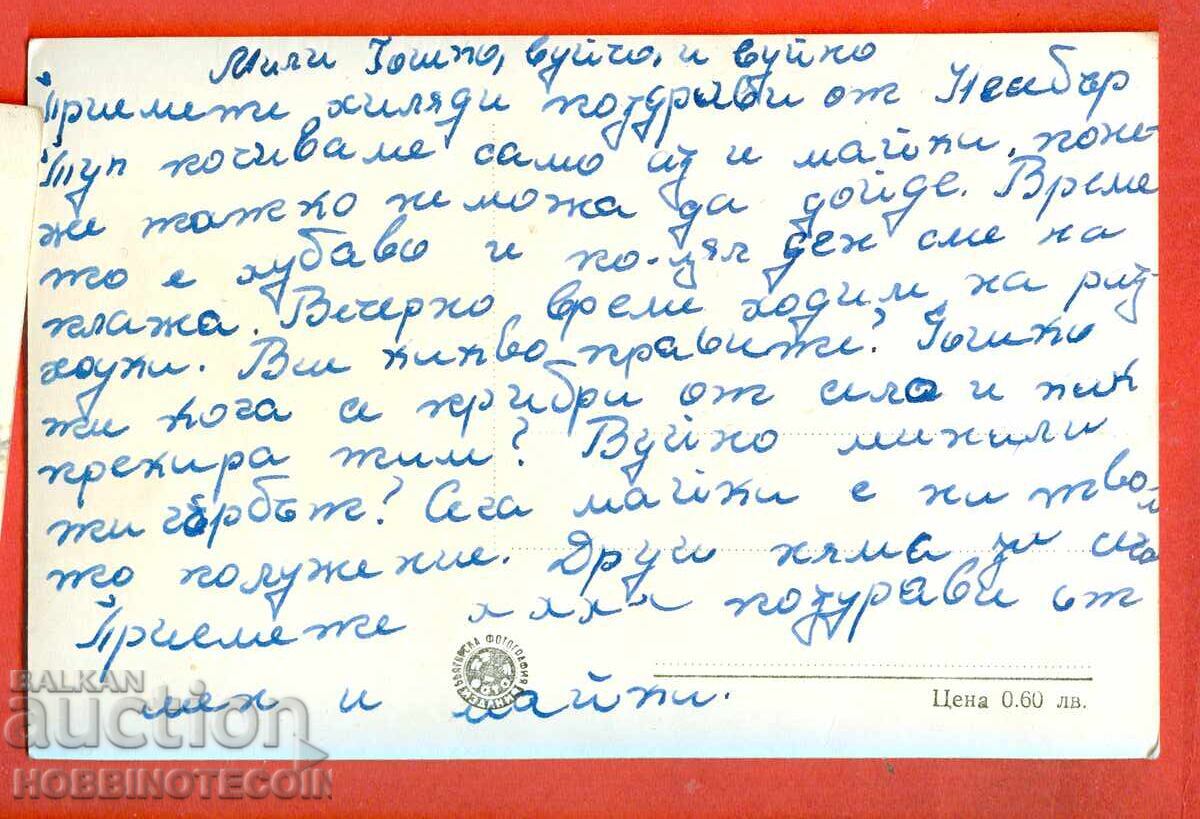 Мили Гошко, вуйчо, и вуйно
Приемете хиляди поздрави от Несебър
Тук почиваме само аз и майки, поне-
же татко не можа да дойде. Време
то е хубаво и по-цял ден сме на
плажа. Вечерно време ходим на раз-
ходки. Вие какво правите? Гошко
ти кога се прибра от село и как
прекира тим? Вуйно минали
ти гърбът? Сега майки е ни твоо
то положение. Друго няма за сега
Приемете хххх поздрави от
мен и майки.
БЪЛГАРСКА ФОТОГРАФИЯ
Цена 0.60 лв.
BALKAN
auction
HOBBINOTECOIN